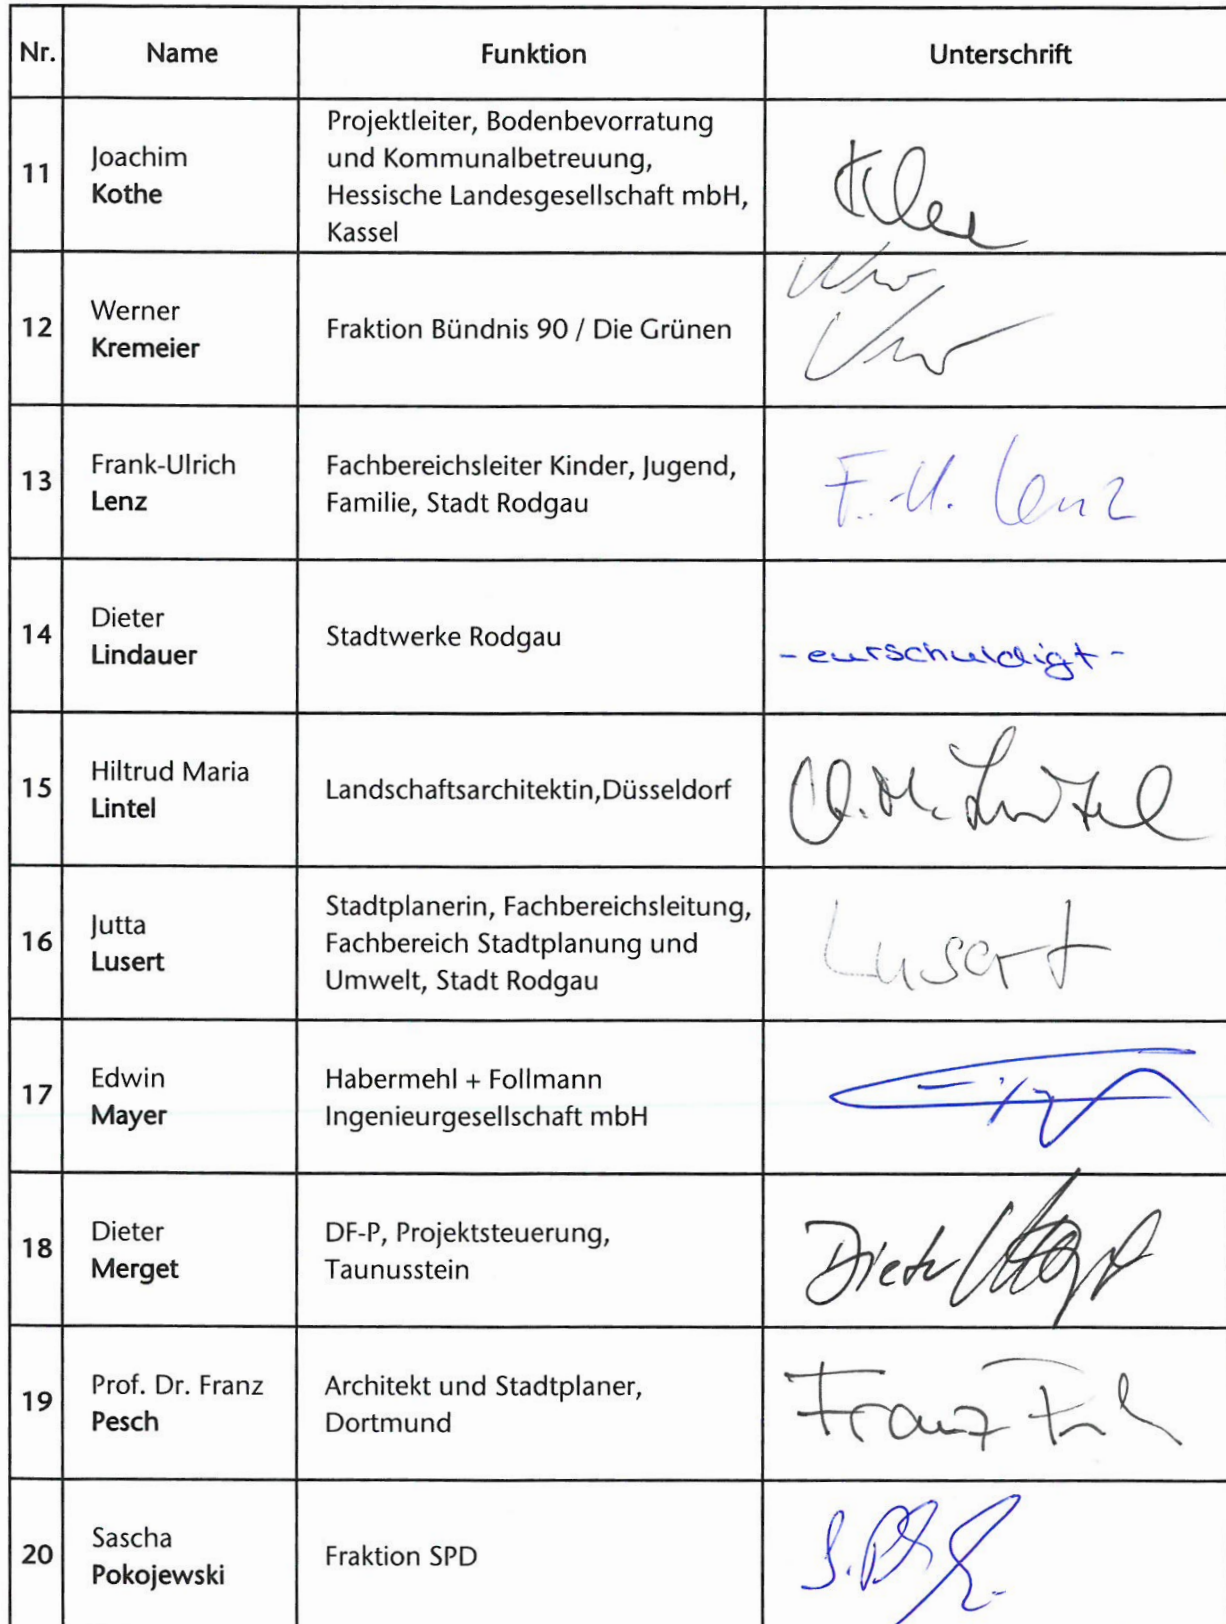 Nr. Name Funktion Unterschrift
11
Joachim
Kothe
Projektleiter, Bodenbevorratung
und Kommunalbetreuung,
Hessische Landesgesellschaft mbH,
Kassel
12
Werner
Kremeier
Fraktion Bündnis 90 / Die Grünen
13
Frank-Ulrich
Lenz
Fachbereichsleiter Kinder, Jugend,
Familie, Stadt Rodgau
F.-U. Lenz
14
Dieter
Lindauer
Stadtwerke Rodgau
- entschuldigt -
15
Hiltrud Maria
Lintel
Landschaftsarchitektin,Düsseldorf
H. M. Lintel
16
Jutta
Lusert
Stadtplanerin, Fachbereichsleitung,
Fachbereich Stadtplanung und
Umwelt, Stadt Rodgau
Lusert
17
Edwin
Mayer
Habermehl + Follmann
Ingenieurgesellschaft mbH
18
Dieter
Merget
DF-P, Projektsteuerung,
Taunusstein
Dieter
19
Prof. Dr. Franz
Pesch
Architekt und Stadtplaner,
Dortmund
Franz
20
Sascha
Pokojewski
Fraktion SPD